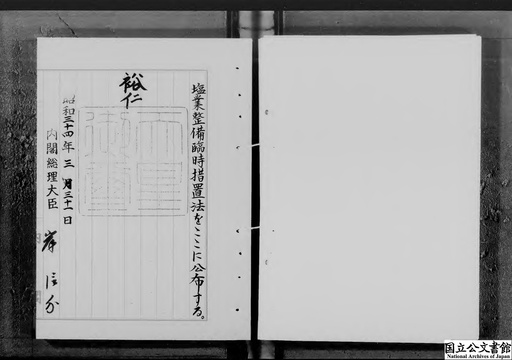 塩業整備臨時措置法をここに公布する。
裕仁
天皇御璽
昭和三十四年三月三十一日
内閣総理大臣 岸信介
国立公文書館
National Archives of Japan